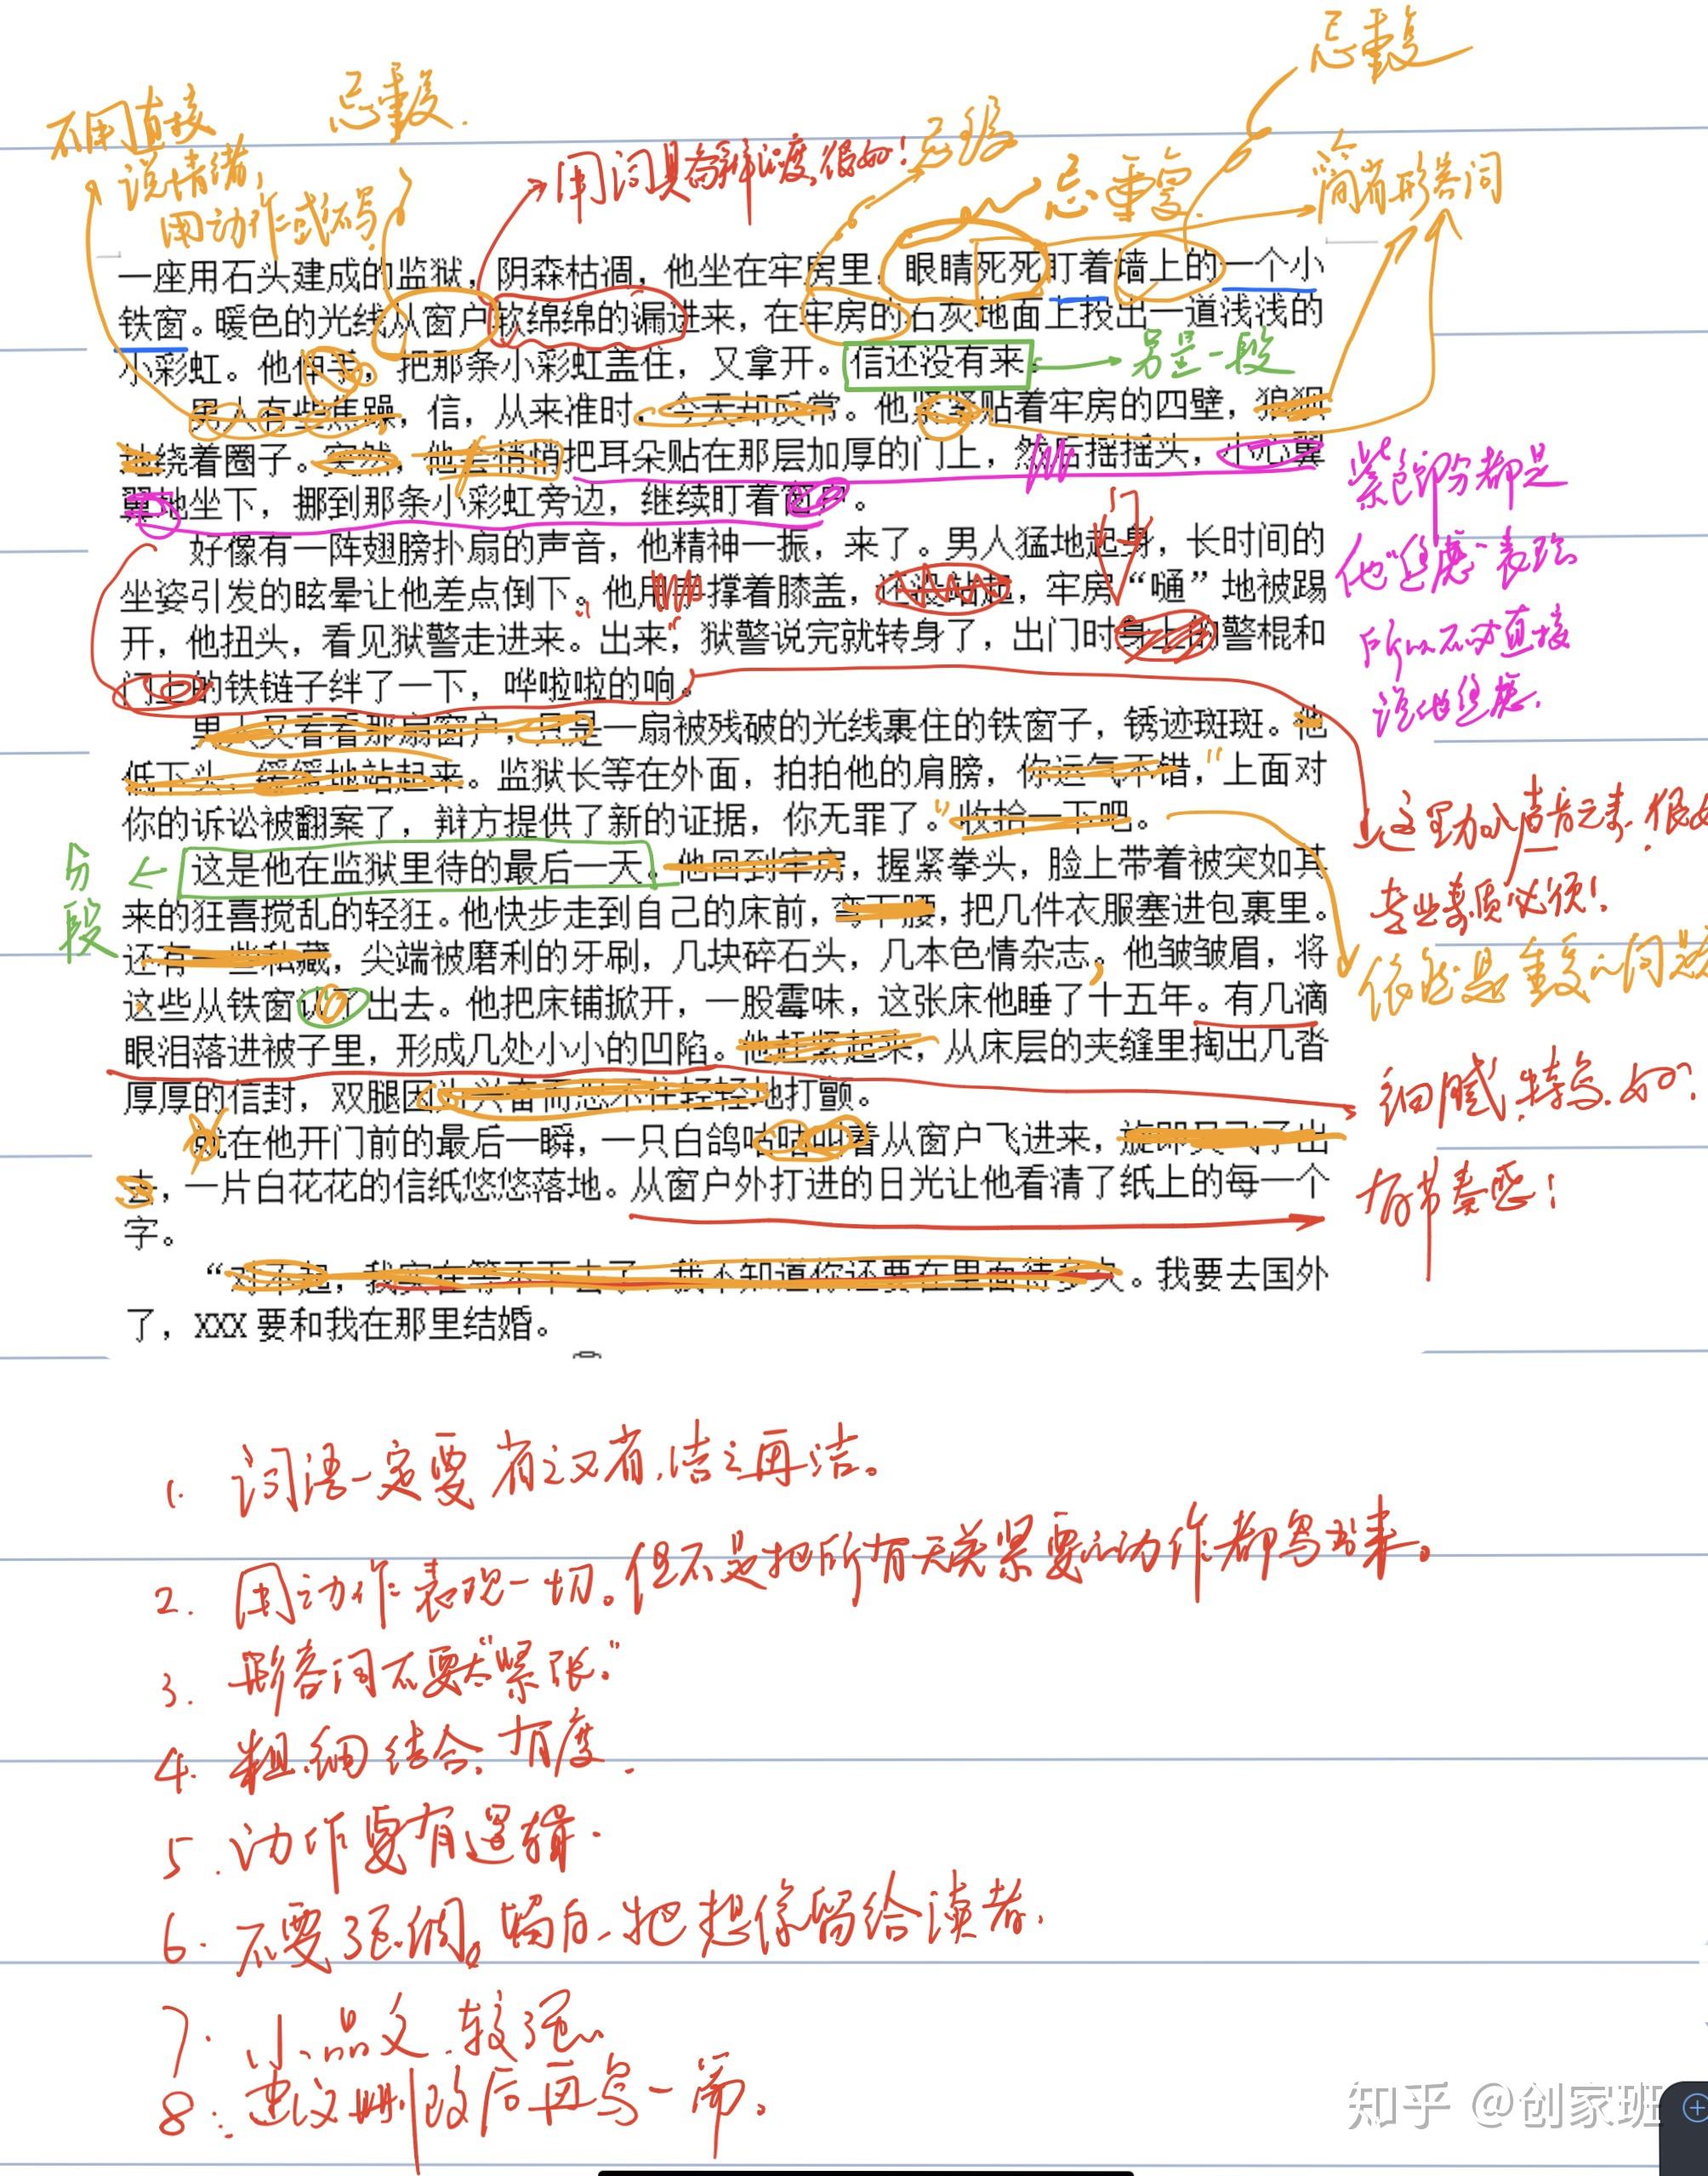 忌重复
忌重复.
不用直接
说情绪,
用动作或不写
用词具有辨识度,很好!
忌重复.
简省形容词
一座用石头建成的监狱，阴森枯凋，他坐在牢房里，眼睛死死盯着墙上的一个小
铁窗。暖色的光线从窗户软绵绵的漏进来，在牢房的石灰地面上投出一道浅浅的
小彩虹。他伸手，把那条小彩虹盖住，又拿开。信还没有来。
另是一段
男人有些焦躁，信，从来准时，今天却反常。他紧紧贴着牢房的四壁，狼狈
地绕着圈子。突然，他会悄悄把耳朵贴在那层加厚的门上，然后摇摇头，小心翼
翼地坐下，挪到那条小彩虹旁边，继续盯着窗户。
紫色部分都是
他“焦虑”表现
所以不必直接
说他焦虑.
好像有一阵翅膀扑扇的声音，他精神一振，来了。男人猛地起身，长时间的
坐姿引发的眩晕让他差点倒下。他用手撑着膝盖，还没站起，牢房“嗵”地被踢
开，他扭头，看见狱警走进来。出来，狱警说完就转身了，出门时身上的警棍和
门上的铁链子绊了一下，哗啦啦的响。
门
男人又看看那扇窗户，只是一扇被残破的光线裹住的铁窗子，锈迹斑斑。他
低下头，缓缓地站起来。监狱长等在外面，拍拍他的肩膀，你运气不错，上面对
你的诉讼被翻案了，辩方提供了新的证据，你无罪了。收拾一下吧。
这里加入声音元素.很好
专业素质必须!
这是他在监狱里待的最后一天。他回到牢房，握紧拳头，脸上带着被突如其
来的狂喜搅乱的轻狂。他快步走到自己的床前，弯下腰，把几件衣服塞进包裹里。
还有一些私藏，尖端被磨利的牙刷，几块碎石头，几本色情杂志。他皱皱眉，将
这些从铁窗扔了出去。他把床铺掀开，一股霉味，这张床他睡了十五年。有几滴
眼泪落进被子里，形成几处小小的凹陷。他赶紧起来，从床层的夹缝里掏出几沓
厚厚的信封，双腿因为兴奋而忍不住轻轻地打颤。
分
段
依然是重复的问题
细腻,特写.好!
就在他开门前的最后一瞬，一只白鸽咕咕叫着从窗户飞进来，旋即又飞了出
去，一片白花花的信纸悠悠落地。从窗户外打进的日光让他看清了纸上的每一个
字。
有节奏感!
“对不起，我实在等不下去了，我不知道你还要在里面待多久。我要去国外
了，XXX 要和我在那里结婚。
1. 词语一定要省之又省,洁之再洁。
2. 用动作表现一切。但不是把所有无关紧要的动作都写出来。
3. 形容词不要太“紧张.”
4. 粗.细结合.有度.
5. 动作要有逻辑.
6. 不要强调。留白.把想像留给读者.
7. 小品文.较强
8. 建议删改后再写一篇.
知乎 @创家班